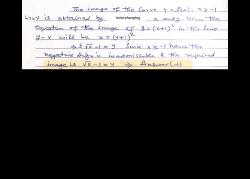 The image of the curve y = f(x), x ≥ -1
is obtained by interchanging x and y. Hence
equation of the image of y = (x+1)² in the line
y = x will be x = (y+1)²
⇒ ± √x - 1 = y Since x ≥ -1 hence the
negative sign is inadmissible & the required
image is √x - 1 = y ⇒ Answer (d)